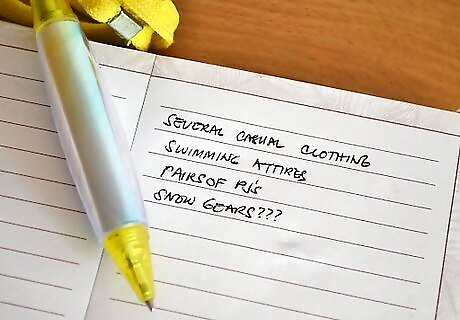 SEVERAL CASUAL CLOTHING
SWIMMING ATTIRES
PAIRS OF PJ's
SNOW GEARS???